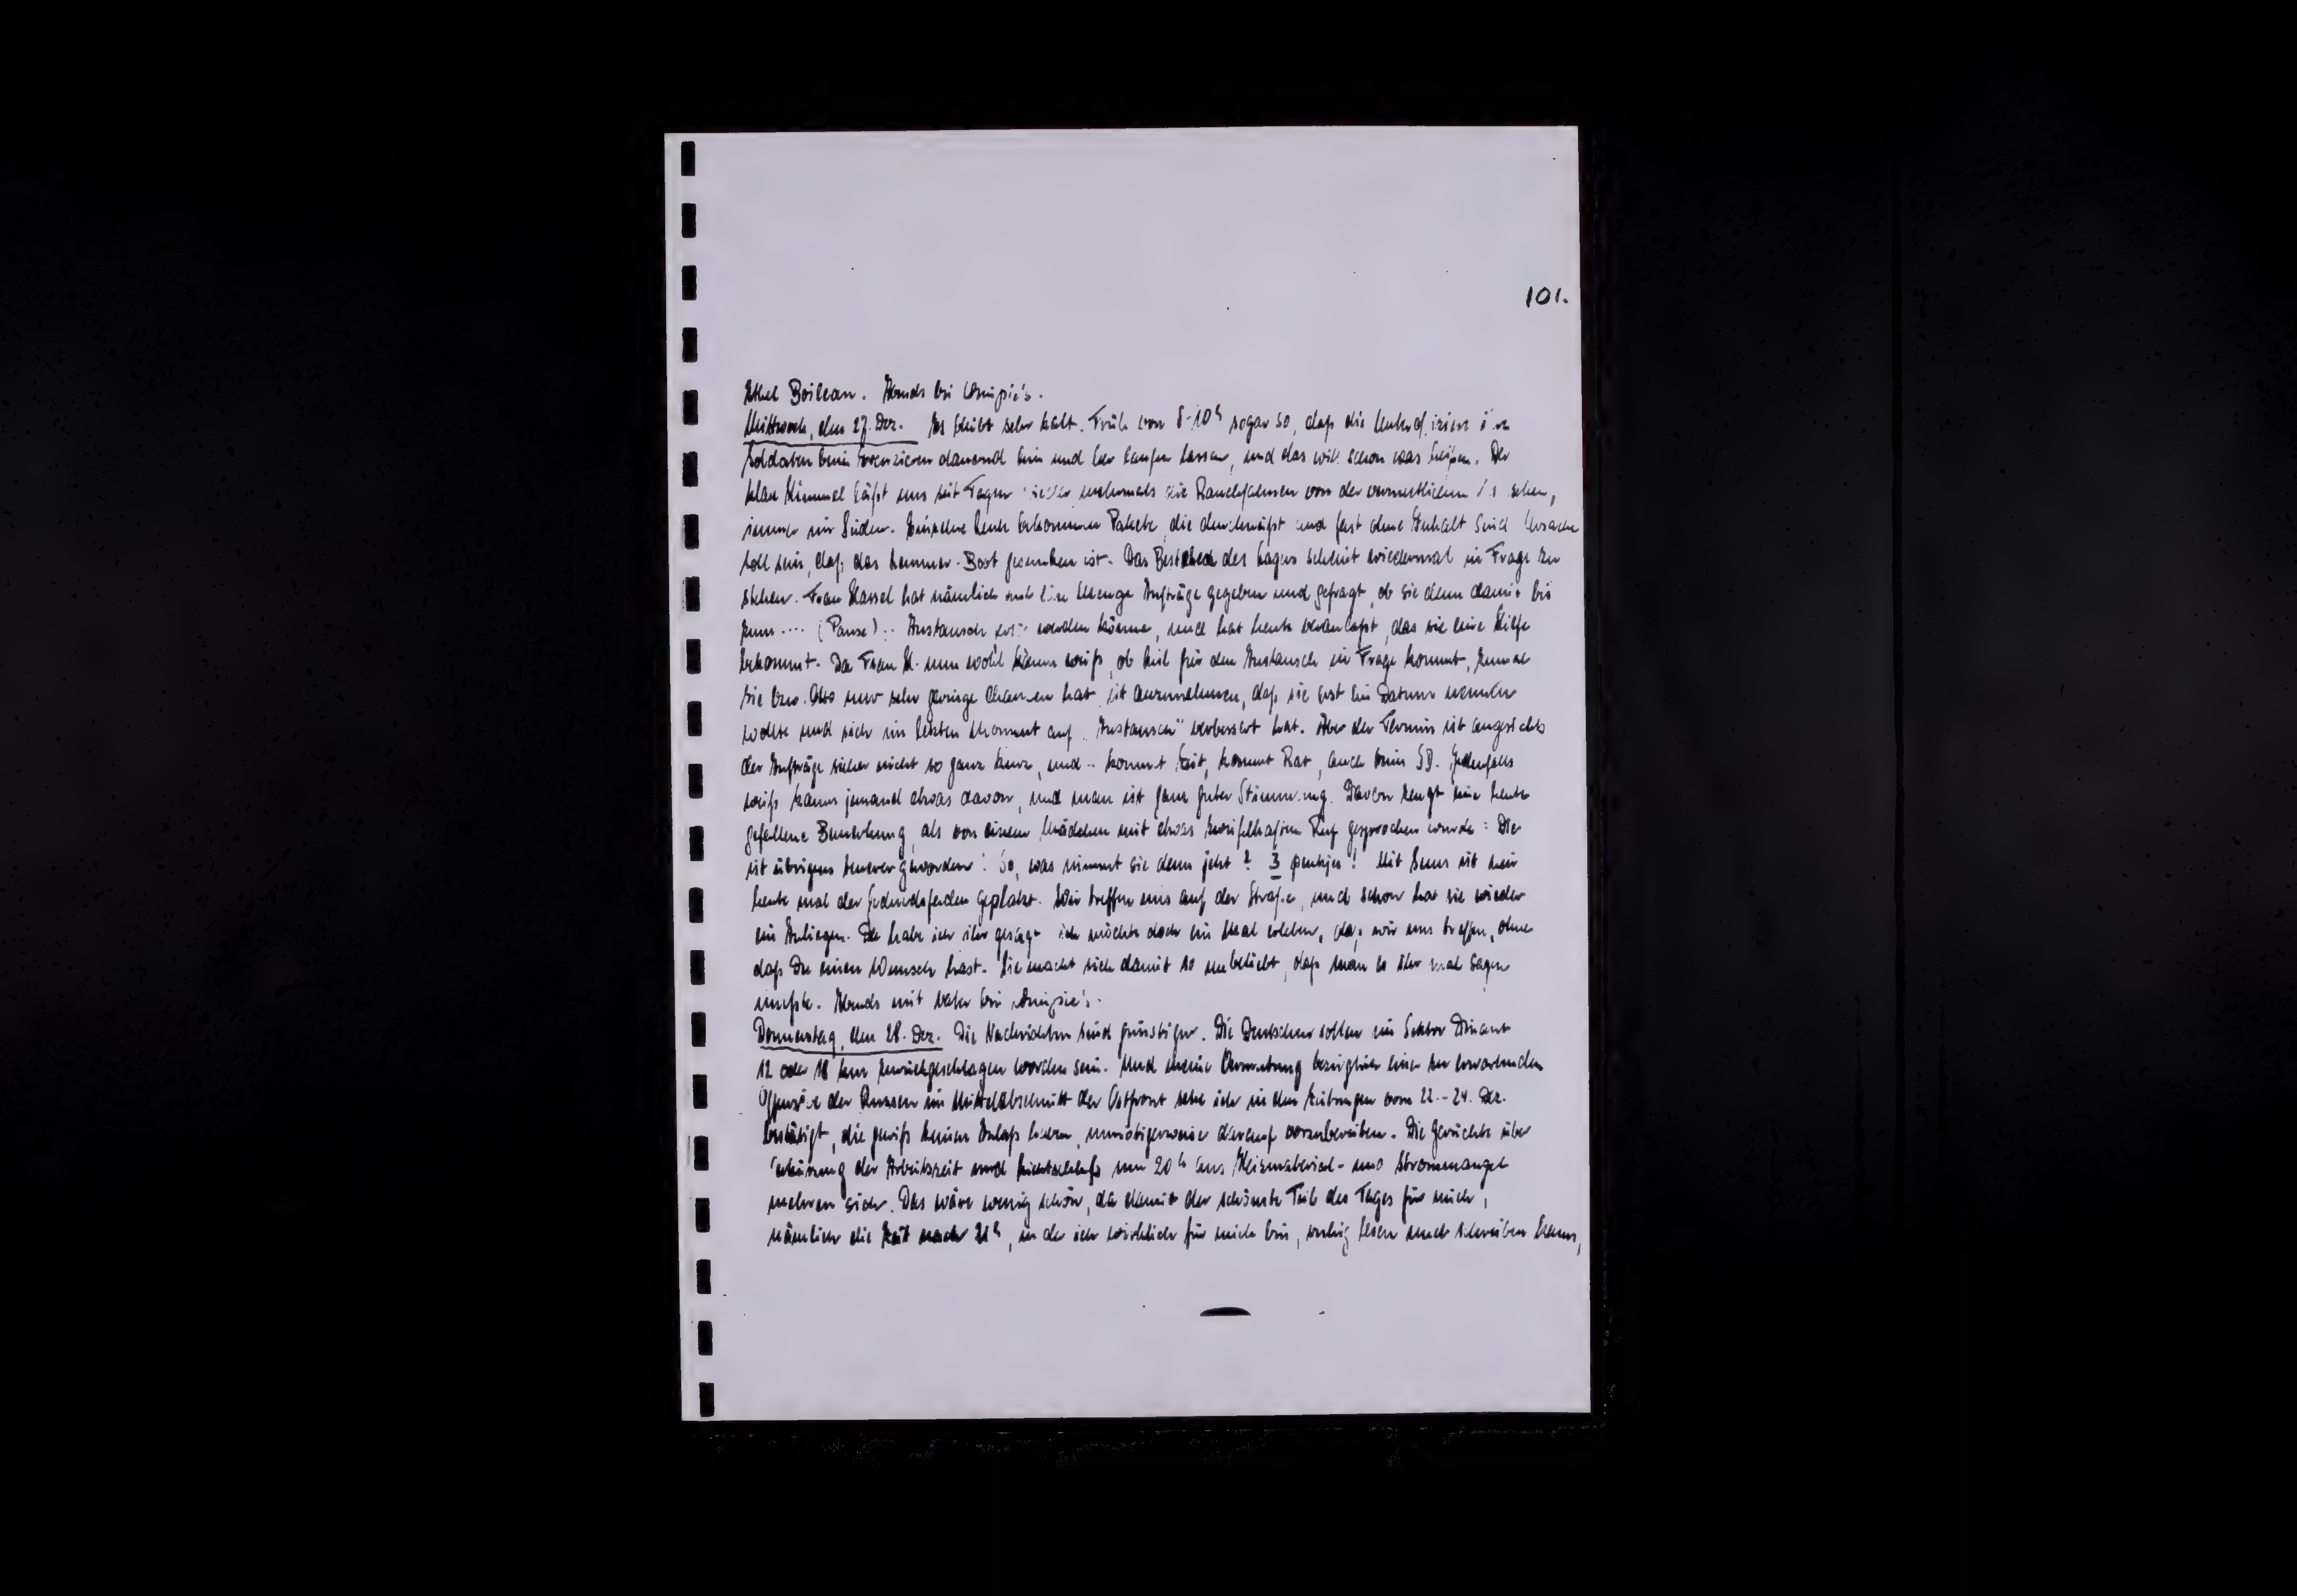 101.
Ethel Boileau. Abends bei
Mittwoch, den 27. Dez. Es bleibt sehr kalt. Früh von 8-10h sogar so, daß die
Soldaten beim Exerzieren dauernd hin und her laufen lassen, und das will schon was heißen. Der
klare Himmel läßt uns seit Tagen wieder mehrmals die Rauchfahnen von der vermutlichen sehen,
immer im Süden. Einzelne Leute bekommen Pakete, die durchnäßt und fast ohne Inhalt sind. Ursache
soll sein, daß das Lemmer-Boot gesunken ist. Das Bestehen des Lagers scheint wiedermal in Frage zu
stehen. Frau Hassel hat nämlich eine Menge Aufträge gegeben und gefragt, ob sie denn damit bis
zum .... (Pause) .. Austausch werden könne, und hat heute veranlaßt, das sie eine Hilfe
bekommt. Da Frau H. nun wohl kaum weiß, ob hier für den Austausch in Frage kommt, zumal
sie bzw. Otto nur sehr geringe Chancen hat, ist anzunehmen, daß sie erst ein Datum nennen
wollte und sich im letzten Moment auf "Austausch" verbessert hat. Aber der Termin ist angesichts
der Aufträge sicher nicht so ganz kurz, und .. kommt Zeit, kommt Rat, auch beim SD. Jedenfalls
weiß kaum jemand etwas davon, und man ist ganz guter Stimmung. Davon zeugt eine heute
gefallene Bemerkung, als von einem Mädchen mit etwas zweifelhaftem Ruf gesprochen wurde: Die
ist übrigens teurer geworden! So, was nimmt sie denn jetzt? 3 puntjes! Mit ist mir
heute mal der Geduldsfaden geplatzt. Wir treffen uns auf der Straße, und schon hat sie wieder
ein Anliegen. Da habe ich ihr gesagt ich möchte doch ein Mal erleben, daß wir uns treffen, ohne
daß Du einen Wunsch hast. Sie macht sich damit so unbeliebt, daß man es ihr mal sagen
mußte. Abends mit Vater bei
Donnerstag, den 28. Dez. Die Nachrichten sind günstiger. Die Deutschen sollen im Sektor Dinant
12 oder 18 km zurückgeschlagen worden sein. Und meine Vermutung bezüglich einer zu erwartenden
Offensive der Russen im Mittelabschnitt der Ostfront sehe ich in den Zeitungen vom 22.-24. Dez.
bestätigt, die gewiß keinen Anlaß haben, unnötigerweise darauf vorzubereiten. Die Gerüchte über
Verkürzung der Arbeitszeit und Lichtschluß um 20h aus Heizmaterial- und Strommangel
mehren sich. Das wäre wenig schön, da damit der schönste Teil des Tages für mich,
nämlich die Zeit nach 21h, in der ich wirklich für mich bin, ruhig lesen und schreiben kann,